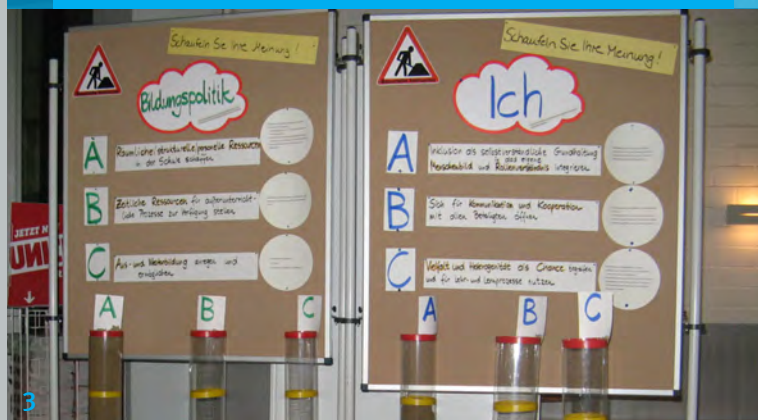 Schaufeln Sie Ihre Meinung!
Bildungspolitik
A
Räumliche/strukturelle/personelle Ressourcen
in der Schule schaffen
B
Zeitliche Ressourcen für außerunterricht-
liche Prozesse zur Verfügung stellen
C
Aus- und Weiterbildung anregen und
ermöglichen
A
B
C
Schaufeln Sie Ihre Meinung!
Ich
A
Inklusion als selbstverständliche Grundhaltung
in das eigene
Menschenbild und Rollenverständnis integrieren
B
Sich für Kommunikation und Kooperation
mit allen Beteiligten öffnen
C
Vielfalt und Heterogenität als Chance begreifen
und für Lehr- und Lernprozesse nutzen
A
B
C
JETZT
3